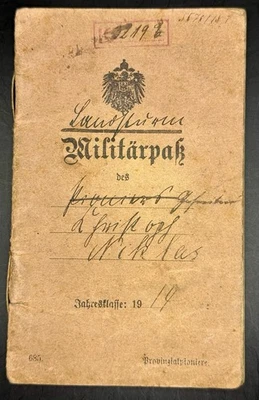 2198
Landsturm
Militärpaß
des
Pioniers Gefreiten
Christoph
Niklas
Jahresklasse: 19 14
685.
Provinzialpioniere